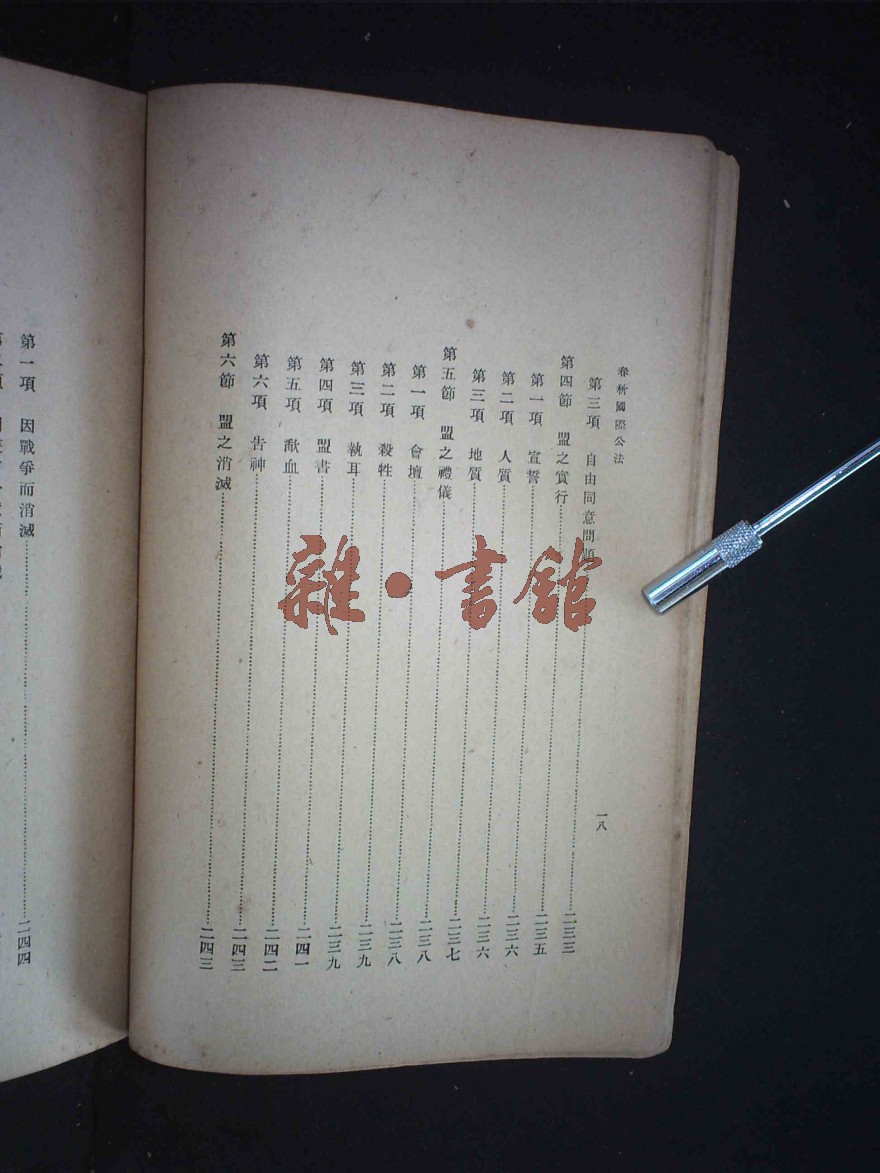 春秋國際公法
一八
第三項 自由同意問題……二三三
第四節 盟之實行……二三五
第一項 宣誓……二三六
第二項 人質……二三六
第三項 地質……二三七
第五節 盟之禮儀……二三八
第一項 會壇……二三八
第二項 殺牲……二三九
第三項 執耳……二三九
第四項 盟書……二四一
第五項 歃血……二四二
第六項 告神……二四三
第六節 盟之消滅……二四三
第一項 因戰爭而消滅……二四四
雜·書館